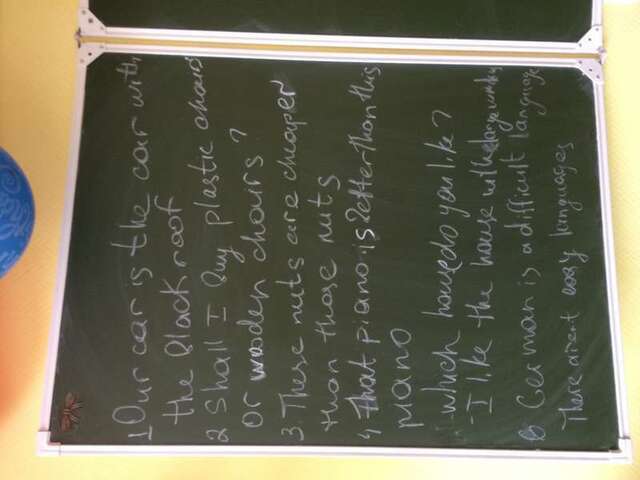 1 Our car is the car with
the Black roof
2 Shall I Buy plastic chairs
or wooden chairs?
3. These nuts are cheaper
than those nuts
4, That piano is Better than this
piano
which house do you like?
- I like the house with the large windows
6 German is a difficult language
There arent easy languages